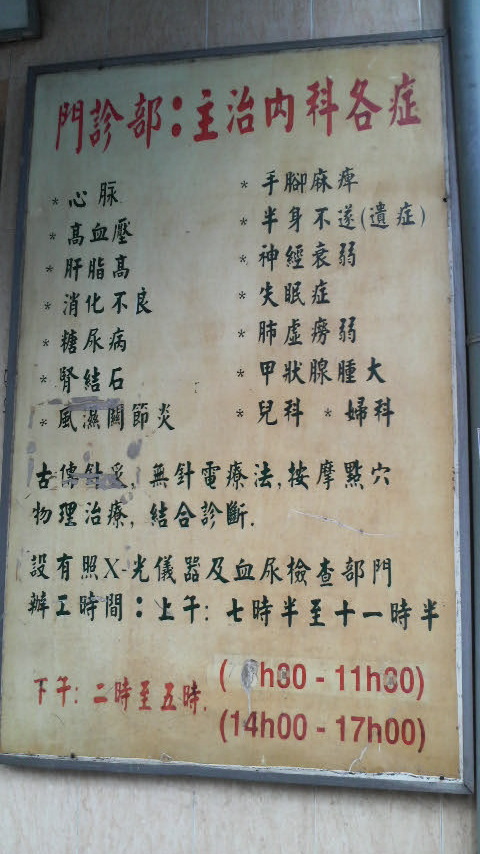 門診部：主治內科各症
* 心脈
* 高血壓
* 肝脂高
* 消化不良
* 糖尿病
* 腎結石
* 風濕關節炎
* 手腳麻痺
* 半身不遂(遺症)
* 神經衰弱
* 失眠症
* 肺虛癆弱
* 甲狀腺腫大
* 兒科 * 婦科
古傳針灸, 無針電療法, 按摩點穴
物理治療, 結合診斷.
設有照X-光儀器及血尿檢查部門
辦工時間：上午: 七時半至十一時半
下午: 二時至五時.
( h30 - 11h30)
(14h00 - 17h00)